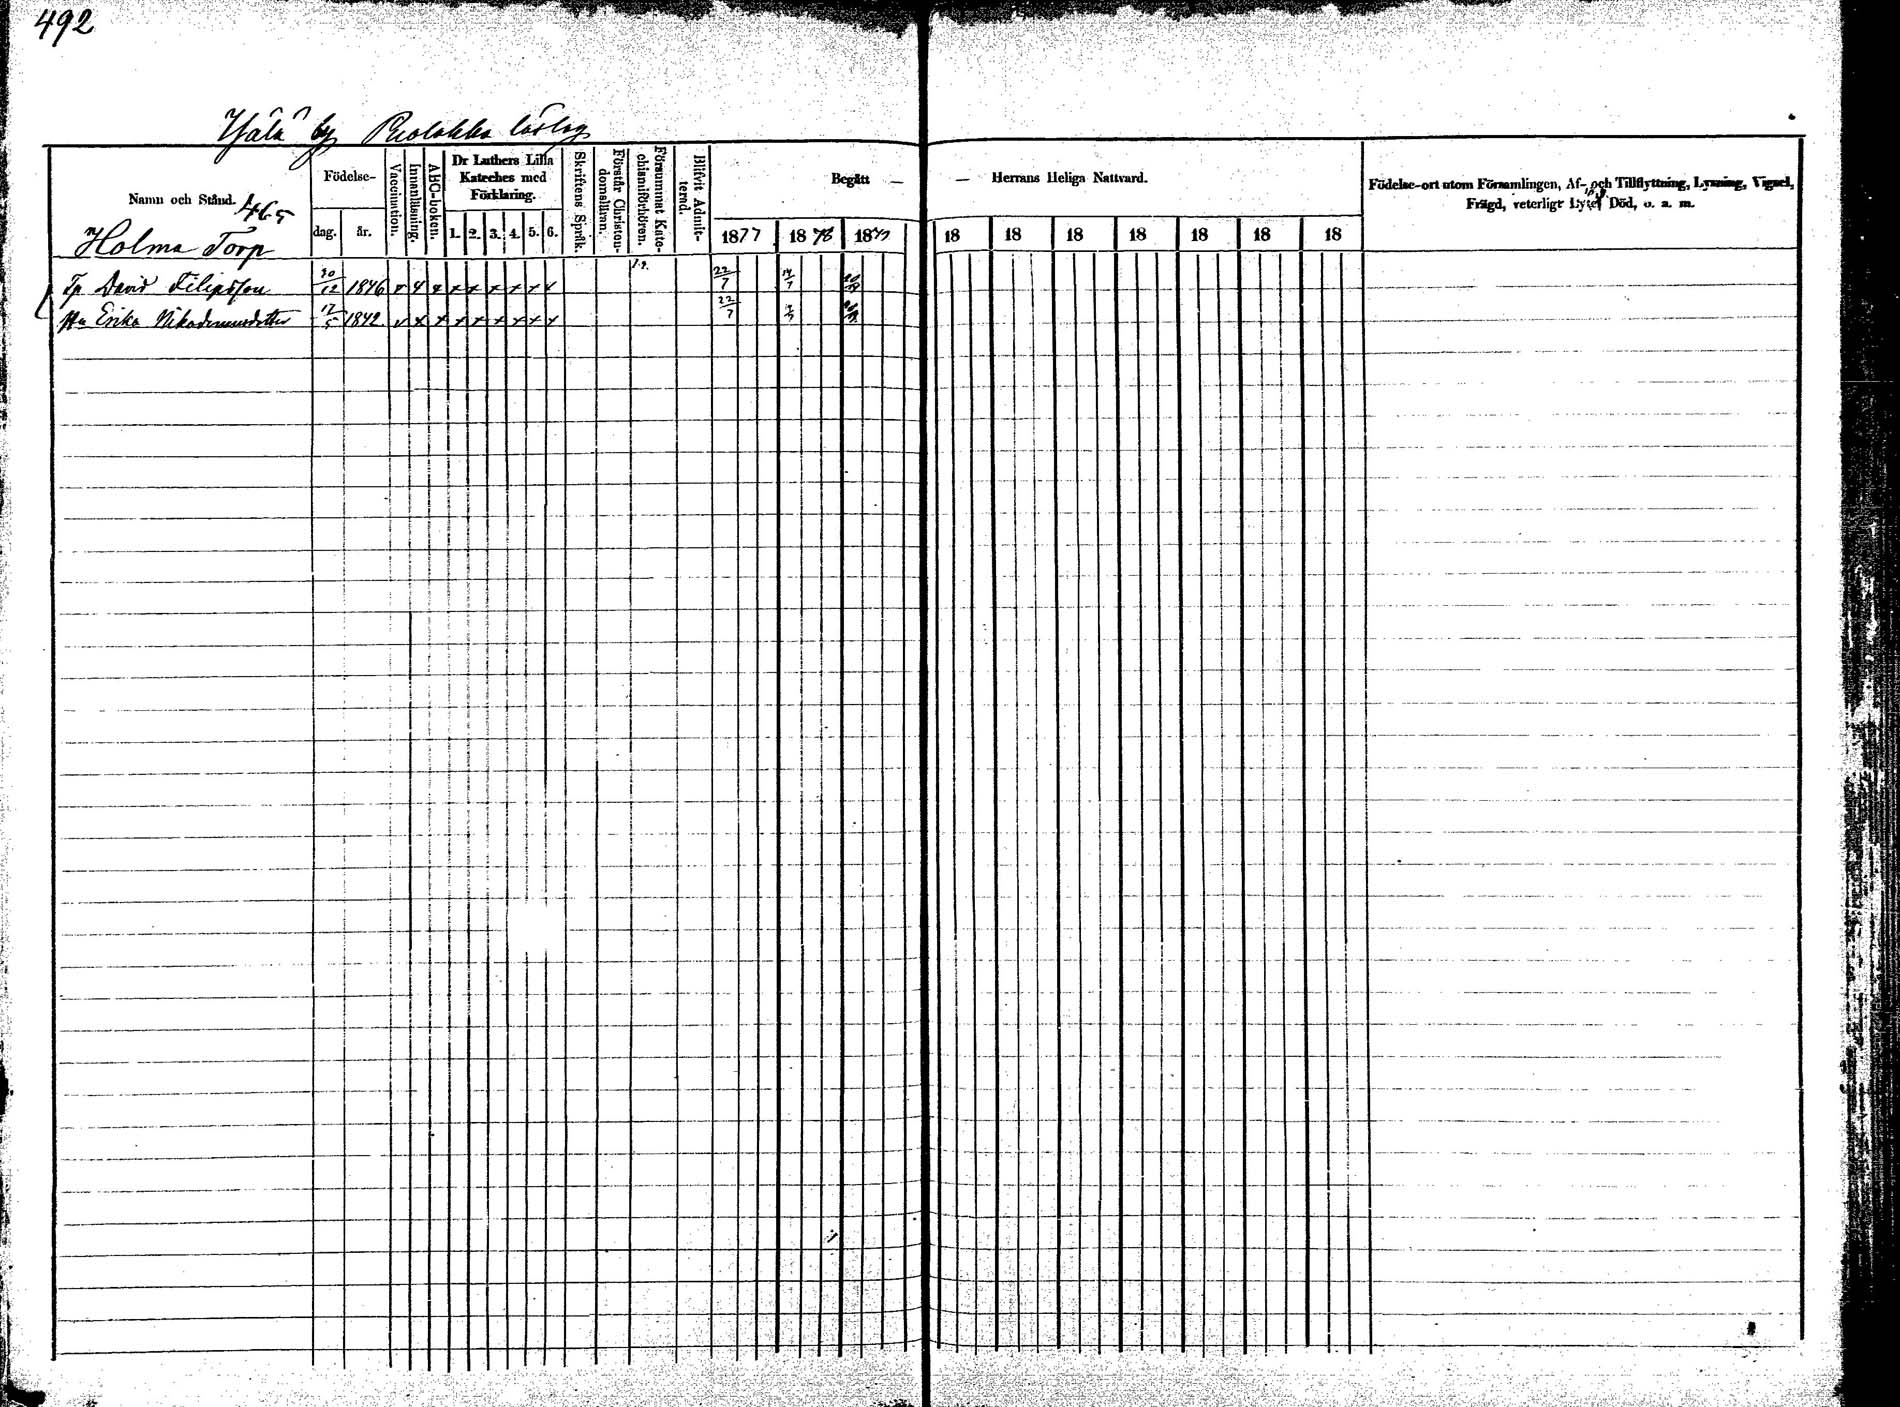 492
by Puolakka läslag
Namn och Stånd. 465
Holma Torp
Födelse-
dag. år.
Vaccination.
Innanläsning.
ABC-boken.
Dr Luthers Lilla
Kateches med
Förklaring.
1. 2. 3. 4. 5. 6.
Skriftens Språk.
Förstår Christen-
domsläran.
Försummat Kate-
chismiförhören.
Blifvit Admit-
terad.
Begått — — Herrans Heliga Nattvard.
1877 1878 18 18 18 18 18 18 18 18
Födelse-ort utom Församlingen, Af- och Tillflyttning, Lysning, Vigsel,
Frägd, veterligt Lyte, Död, o. a. m.
Tp David Filipsson 30/12 1846 x x x x x x x x x 22/7
Hu Erika Nikodemusdotter 17/5 1842 v x x x x x x x x 22/7